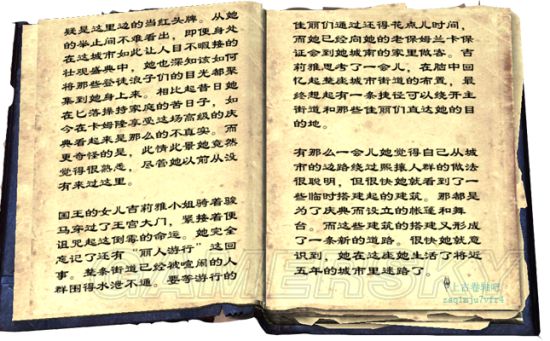 疑是这里边的当红头牌。从她
的举止间不难看出，即便身处
在这城市如此让人目不暇接的
壮观盛典中，她也深知该如何
将那些登徒浪子们的目光都聚
集到她身上来。相比起昔日她
在匕落操持家庭的苦日子，如
今在卡姆隆享受这场高级的庆
典看起来是那么的不真实。而
更奇怪的是，此情此景她竟然
觉得很熟悉，尽管她以前从没
有来过这里。
国王的女儿吉莉雅小姐骑着骏
马穿过了王宫大门，紧接着便
诅咒起这倒霉的命运。她完全
忘记了还有“丽人游行”这回
事。整条街道已经被喧闹的人
群围得水泄不通。要等游行的
佳丽们通过还得花点儿时间，
而她已经向她的老保姆兰卡保
证会到她城南的家里做客。吉
莉雅思考了一会儿，在脑中回
忆起整座城市街道的布置，最
终想起有一条捷径可以绕开主
街道和那些佳丽们直达她的目
的地。
有那么一会儿她觉得自己从城
市的边路绕过熙攘人群的做法
很聪明，但很快她就看到了一
些临时搭建起的建筑。那都是
为了庆典而设立的帐篷和舞
台。而这些建筑的搭建又形成
了一条新的道路。很快她就意
识到，她在这座她生活了将近
五年的城市里迷路了。
GAMERSKY
上古卷轴吧
zaq1mju7vfr4